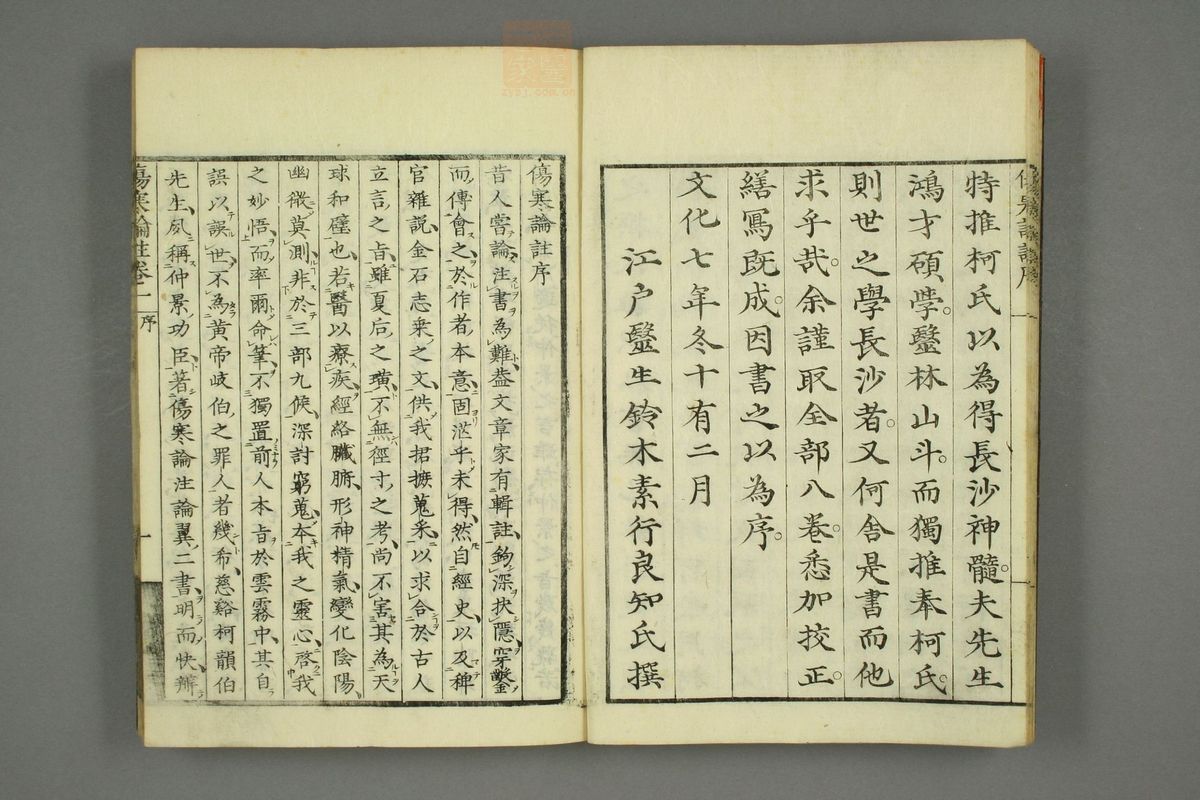 特推柯氏以為得長沙神髓。夫先生
鴻才碩學。毉林山斗。而獨推奉柯氏。
則世之學長沙者。又何舍是書而他
求乎哉。余謹取全部八卷。悉加挍正。
繕寫既成。因書之以為序。
文化七年冬十有二月
江户毉生鈴木素行良知氏撰
傷寒論註序
昔人嘗論注書為難蓋文章家有輯註鉤深抉隱穿鑿
而傳會之於作者本意固茫乎未得然自經史以及稗
官雜説金石志乘之文供我捃摭蒐采以求合於古人
立言之旨雖夏后之璜不無徑寸之考尚不害其為天
球和璧也若醫以療疾經絡臟腑形神精氣變化陰陽
幽微莫測非於三部九候深討窮蒐本我之靈心啓我
之妙悟而率爾命筆不獨置前人本旨於雲霧中其自
誤以誤世不為黄帝岐伯之罪人者幾希慈谿柯韻伯
先生夙稱仲景功臣著傷寒論注論翼二書明而快辨
傷寒論註卷一
序
一
zysj.com.cn